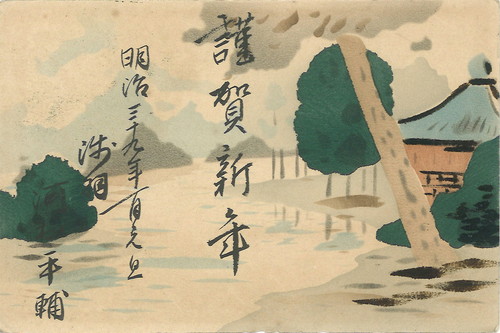 謹賀新年
明治三十九年一月元旦
平輔